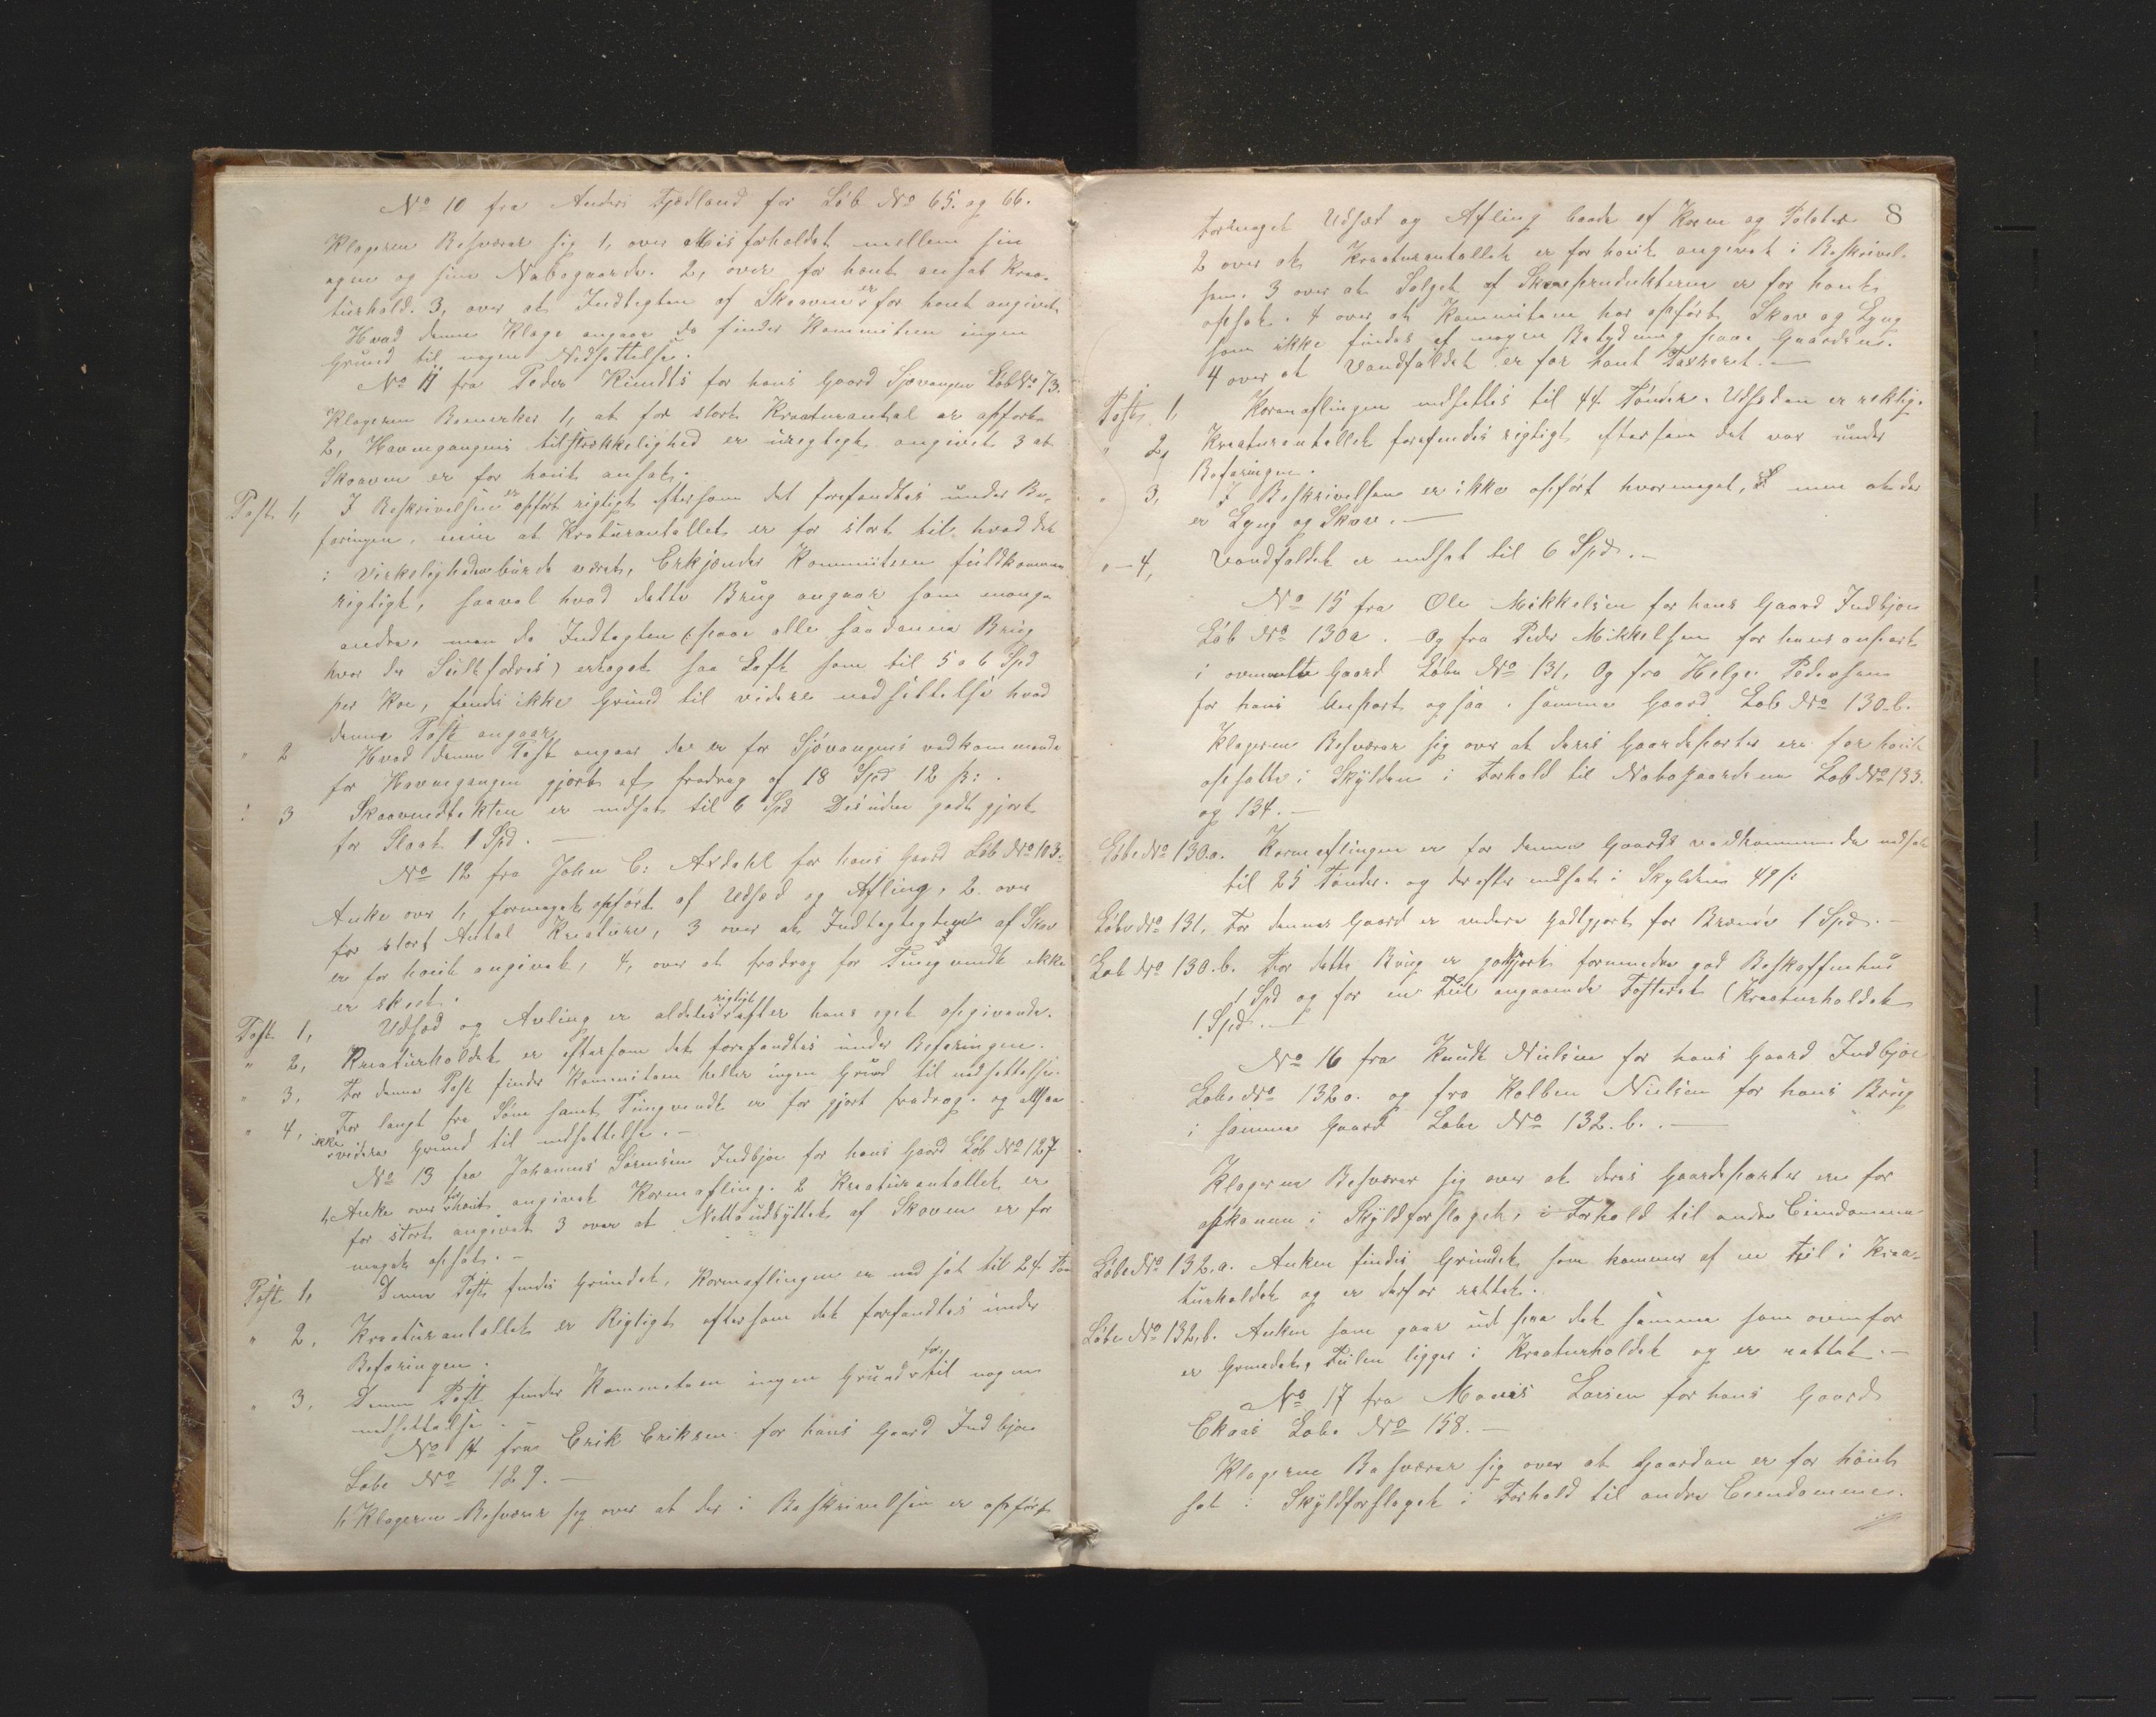 No 10 fra Anders Fjedland for Løb No 65. og 66.
Klageren Besværer sig 1, over Misforholdet mellem sin
egen og sine Nabogaarde. 2, over for høit ansat Krea-
turhold. 3, over at Indtegten af Skoven er for høit angivet
Hvad denne Klage angaar da finder Kommitsen ingen
Grund til nogen Nedsættelse.
No 11 fra Peder Knudts for hans Gaard Sjøvangen Løb No 73.
Klageren Bemerker 1, at for stort Kreaturantal er opførte
2, Havnegangens tilstrekkelighed er urigtigt angivet 3 at
Skoaven er for høit ansat.
Post 1, I Beskrivelsen er opført rigtigt eftersom det forefandtes under Be-
faringen, men at Kraturantallet er for stort til hvad det
i Virkeligheden burde være, Erkjender Kommitsen fuldkommen
rigtigt, saavel hvad dette Brug angaar som mange
andre, men da Indtegten (paa alle saadanne Brug
hvor der Sultfodres) ertaget saa Løft som til 5 a 6 Spd
per Koe, findes ikke Grund til videre nedsættelse hvad
denne Post angaar
" 2 Hvad denne Post angaar da er for Sjøvangens vedkommende
for Havnegangen gjort et fradrag af 18 Spd 12 ß.
" 3 Skoavindtekten er nedsat til 6 Spd Desuden godtgjort
for Slaat 1 Spd.
No 12 fra John C: Axdahl for hans Gaard Løb No 103.
Anke over 1, formeget opført af Udsæd og Afling, 2. over
for stort Antal Kreature, 3 over at Indtegtegten af Skov
er for høit angivet, 4, over at fradrag for Tungvendt ikke
er skeet.
Post 1, Udsæd og Avling er aldeles rigtigt efter hans eget opgivende.
" 2, Kreaturholdet er eftersom det forefandtes under Befaringen.
" 3. For denne Post finder Kommitsen heller ingen Grund til nedsettelse.
" 4, For langt fra Søen samt Tungvendt er for gjort fradrag. og altsaa
ikke videre Grund til nedsettelse. -
No 13 fra Johannes Sørensen Indbjoe for hans Gaard Løb No 127
1, Anke over for høit angivet Kornafling. 2 Kreaturantallet er
for stort angivet 3 over at Nettoudbyttet af Skoven er for
meget opsat. -
Post 1, Denne Post findes Grundet, Kornaflingen er nedsat til 24 Tøn
" 2. Kreaturantallet er Rigtigt eftersom det forfandtes under
Befaringen.
" 3. Denne Post finder Kommetsen ingen Grund for til nogen
nedsettelse. -
No 14 fra Erik Eriksen for hans Gaard Indbjoe
Løbe No 129. -
1, Klageren Besværer sig over at der i Beskrivelsen er opført
8
formeget Udsæd og Afling baade af Korn og Poteter
2 over at Kreaturantallet er for høit angivet i Beskrivel-
sen. 3 over at Salget af Skovprodukterne er for høit
opsat. 4 over at Kommitsen har opført Skov og Lyng
som ikke findes af nogen Betydning paa Gaarden.
4 over at Vandfaldet er for høit Taxseret. -
Post 1, Kornaflingen nedsettes til 44 Tønder. Udsæden er rektig.
" 2, Kreaturantallet forefindes rigtigt eftersom det var under
Befaringen.
" 3, I Beskrivelsen er ikke opført hvormeget, men at der
er Lyng og Skov. -
" - 4, Vandfaldet er nedsat til 6 Spd. -
No 15 fra Ole Mikkelsen for hans Gaard Indbjoe
Løb No 130a. Og fra Peder Mikkelsen for hans anpart
i ovennævnte Gaard Løbe No 131, Og fra Helge Pedersen
for hans Anpart ogsaa i samme Gaard Løb No 130.b.
Klageren Besværer sig over at deres Gaardeparter ere for høit
opsatte i Skylden i Forhold til Nabogaardene Løb No 133.
og 134. -
Løbe No 130.a. Kornaflingen er for denne Gaards vedkommende nedsat
til 25 Tønder. og derefter nedsat i Skylden 49 ß
Løbe No 131. For dennes Gaard er videre godtgjort for Brende 1 Spd. -
Løb No 130.b. For dette Brug er godtgjort formindre god Beskaffenhed
1 Spd og for en Feil angaaende Fosteret (Kreaturholdet
1 Spd. -
No 16 fra Knudt Nielsen for hans Gaard Indbjoe
Løbe No 132a. og fra Kolben Nielsen for hans Brug
i samme Gaard Løbe No 132.b. -
Klagerne Besværer sig over at deres Gaardeparter ere for
opkomne i Skyldforslaget, i Forhold til andre Eiendomme
Løbe No 132.a. Anken findes Grundet som kommer af en Feil i Krea-
turholdet og er derfor rettet.
Løbe No 132.b. Anken som gaar ud paa det samme som ovenfor
er Grundet, Feilen ligger i Kreaturholdet og er rettet. -
No 17 fra Monis Larsen for hans Gaard
Ekaas Løbe No 158. -
Klagerne Besværer sig over at Gaarden er for høit
sat i Skyldforslaget i Forhold til andre Eiendomme.